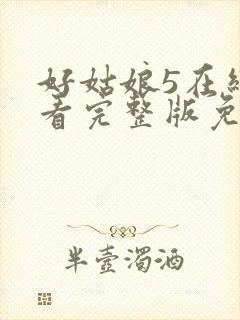 好姑娘5在线
看完整版免
半壶浊酒